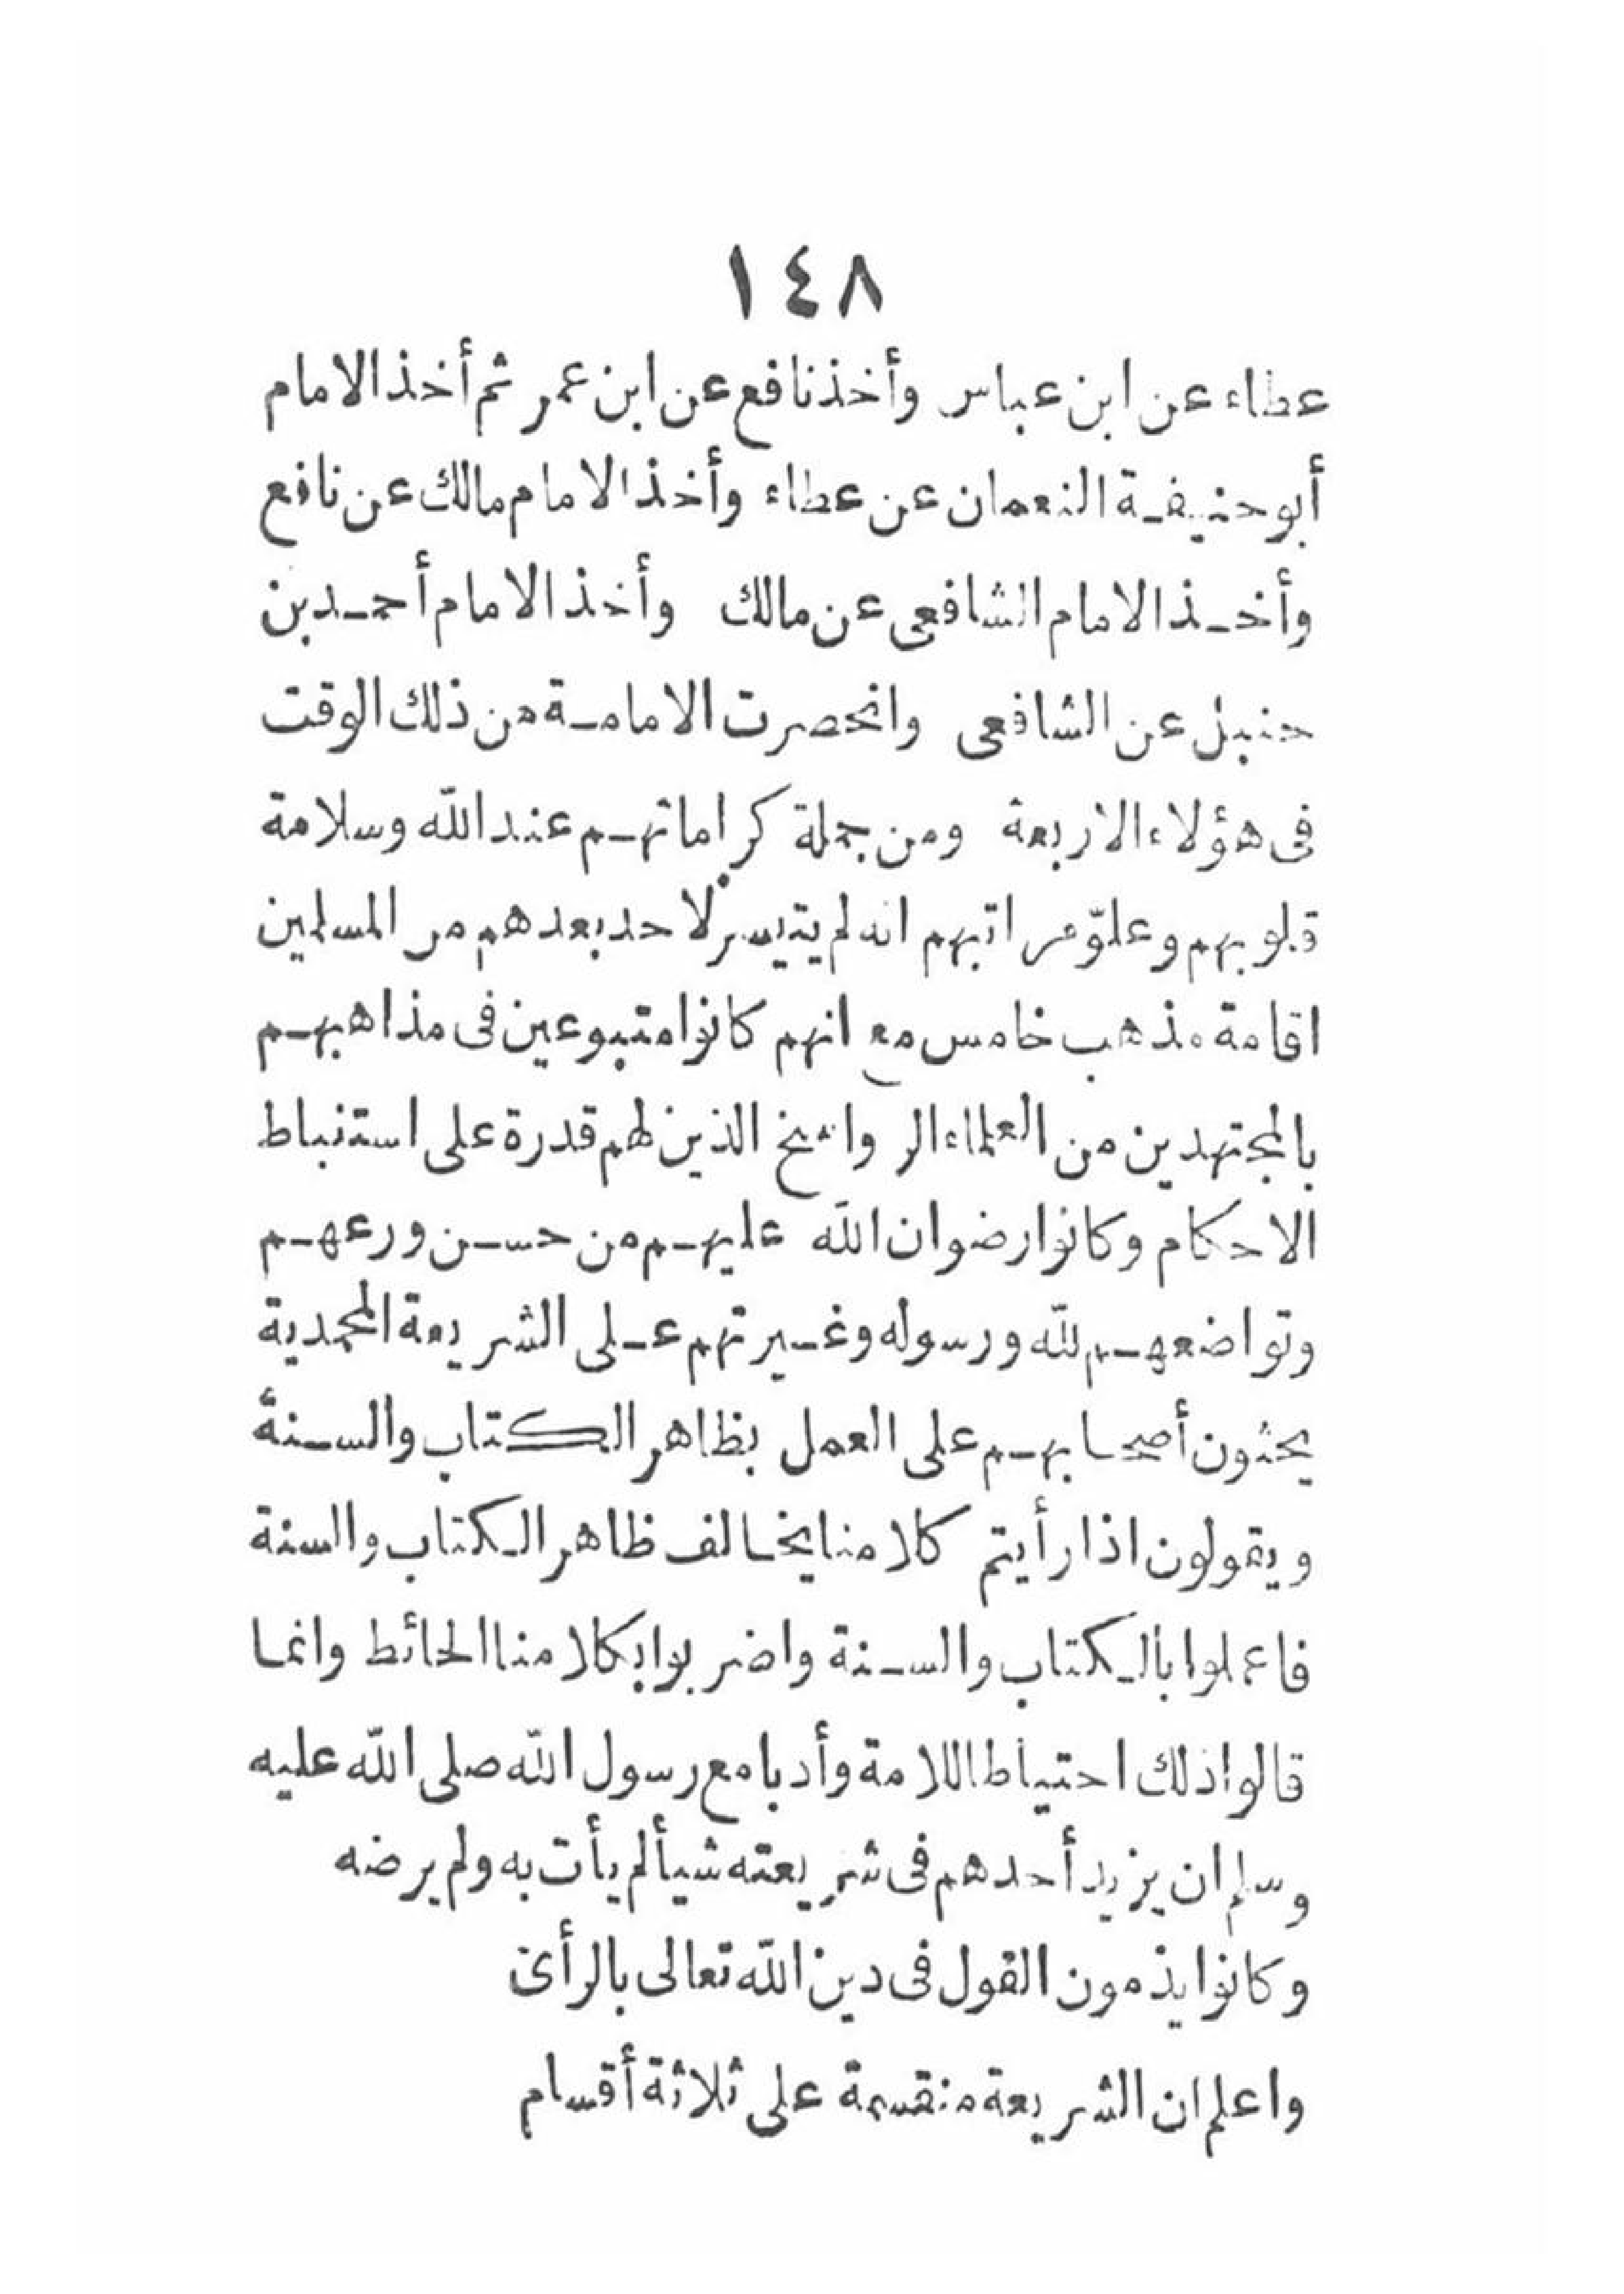 ١٤٨
عطاء عن ابن عباس وأخذ نافع عن ابن عمر ثم أخذ الامام
أبو حنيفة النعمان عن عطاء وأخذ الامام مالك عن نافع
وأخذ الامام الشافعى عن مالك وأخذ الامام أحمد بن
حنبل عن الشافعى وانحصرت الامامة من ذلك الوقت
فى هؤلاء الاربعة ومن جملة كراماتهم عند الله وسلامة
قلوبهم وعلوّ مراتبهم انه لم يتيسر لاحد بعدهم من المسلمين
اقامة مذهب خامس مع انهم كانوا متبوعين فى مذاهبهم
بالمجتهدين من العلماء الرواسخ الذين لهم قدرة على استنباط
الاحكام وكانوا رضوان الله عليهم من حسن ورعهم
وتواضعهم لله ورسوله وغيرتهم على الشريعة المحمدية
يحثون أصحابهم على العمل بظاهر الكتاب والسنة
ويقولون اذا رأيتم كلامنا يخالف ظاهر الكتاب والسنة
فاعملوا بالكتاب والسنة واضربوا بكلامنا الحائط وانما
قالوا ذلك احتياطا للامة وأدبا مع رسول الله صلى الله عليه
وسلم ان يزيد أحدهم فى شريعته شيأ لم يأت به ولم يرضه
وكانوا يذمون القول فى دين الله تعالى بالرأى
واعلم ان الشريعة منقسمة على ثلاثة أقسام